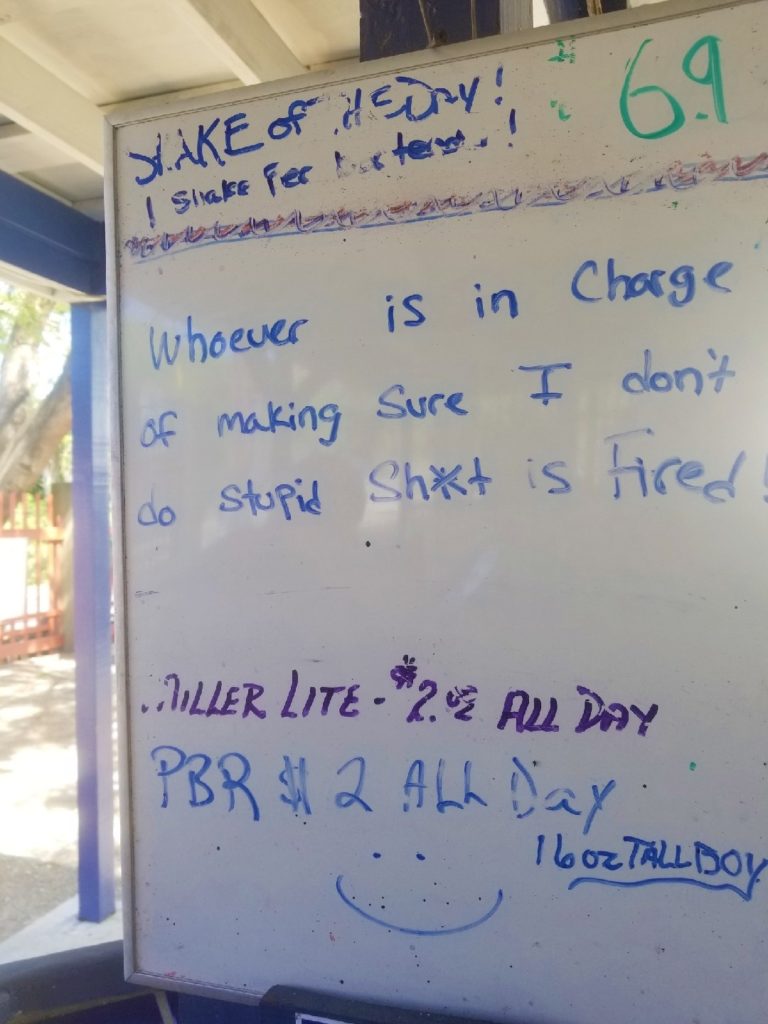 SHAKE of THE DAY! 6.9
! Shake For
Whoever is in Charge
of making Sure I don't
do Stupid Sh*t is Fired!
MILLER LITE - $2. ALL DAY
PBR $ 2 ALL Day
16oz TALLBOY